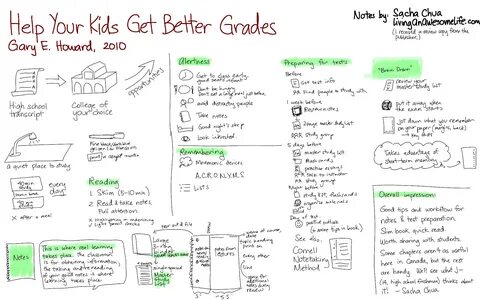 Help Your Kids Get Better Grades
Gary E. Howard, 2010
Notes by: Sacha Chua
livinganawesomelife.com
(I received a review copy from the
publisher)
High school
transcript
College of
your choice
opportunities
a quiet place to study
every day!
X after a meal
Reading
1. Skim (5-10 min)
2. Read & take notes
Full attention
X Highlighting or underlining
Notes
This is where real learning
takes place. The classroom
is for obtaining information;
the taking and rereading
of your good notes is where
learning takes place.
Alertness
Get to class early,
Don't be hungry
avoid distracting people
Take notes
Good night's sleep
Look interested
Remembering
Mnemonic devices
A.C.R.O.N.Y.M.S
LISTS
notes from
lectures
topic heading
Every other
line
See also:
Cornell
Notetaking
Method
Preparing for tests
Before
Get test info
Find people to study with
1 week before
Review notes
Study group
5 days before
master study list
flash cards
practice essays
Talk to instructor
study group
Night before
study list, flashcards
organize materials
Day of test
positive outlook
(& other tips in book)
"Brain Drain"
review your
master study list
put it away when
the exam starts
jot down what you remember
on your paper (margin, back)
Takes advantage of
short-term memory
Overall impression:
Good tips and workflow for
notes & test preparation.
Slim book, quick read.
Worth sharing with students.
Some chapters aren't as useful
here in Canada, but the rest
are handy. We'll see what J-
(14, high school freshman) thinks about
it!
- Sacha Chua